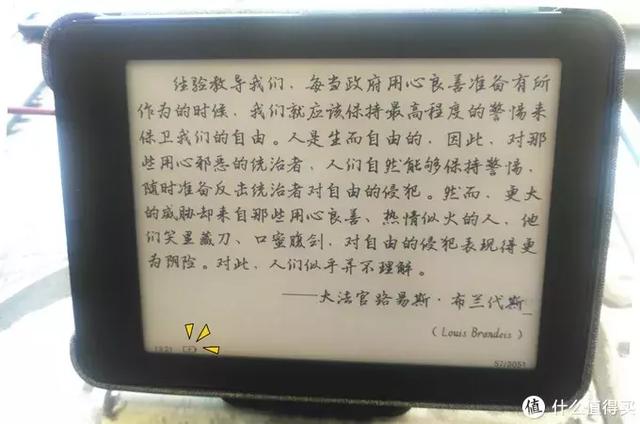 经验教导我们，每当政府用心良善准备有所
作为的时候，我们就应该保持最高程度的警惕来
保卫我们的自由。人是生而自由的，因此，对那
些用心邪恶的统治者，人们自然能够保持警惕，
随时准备反击统治者对自由的侵犯。然而，更大
的威胁却来自那些用心良善、热情似火的人，他
们笑里藏刀、口蜜腹剑，对自由的侵犯表现得更
为阴险。对此，人们似乎并不理解。
——大法官路易斯·布兰代斯
（Louis Brandeis）
19:21
57/2051
值 什么值得买